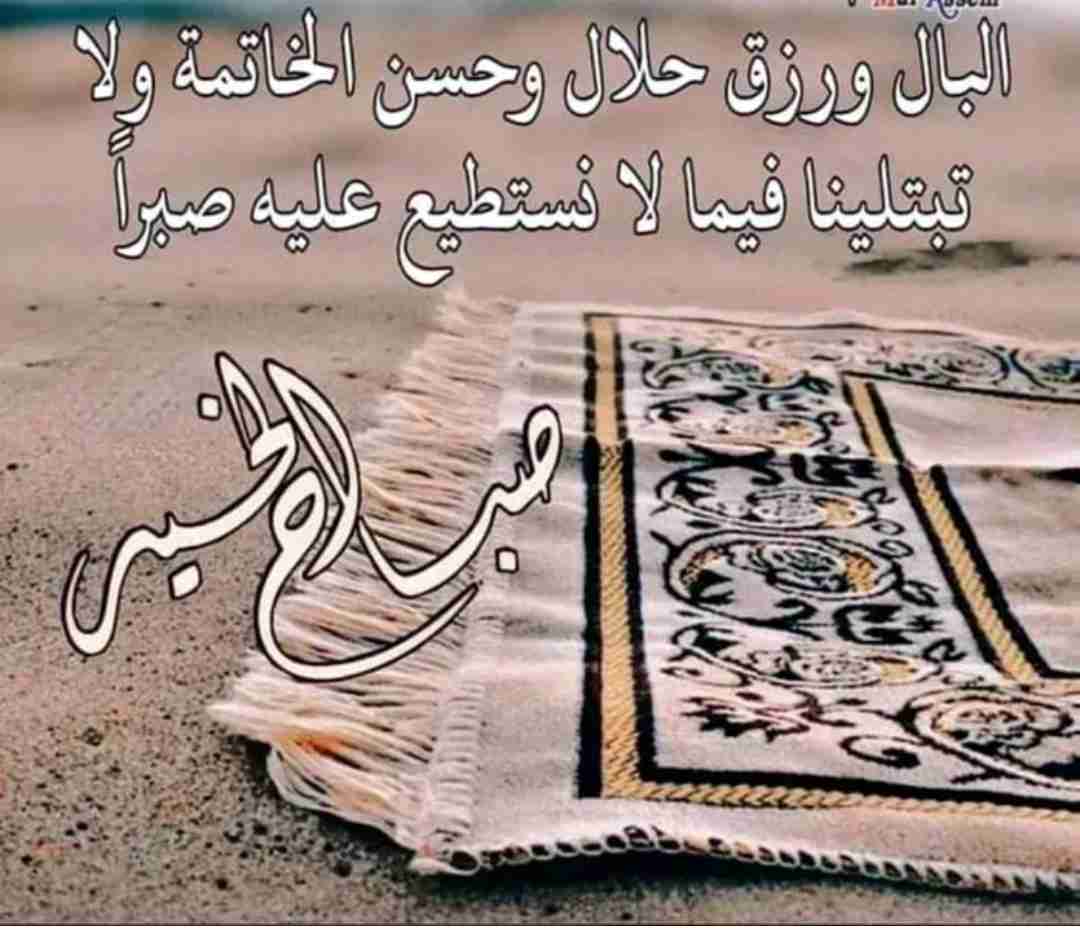 البال ورزق حلال وحسن الخاتمة ولا
تبتلينا فيما لا نستطيع عليه صبراً
صباح الخير